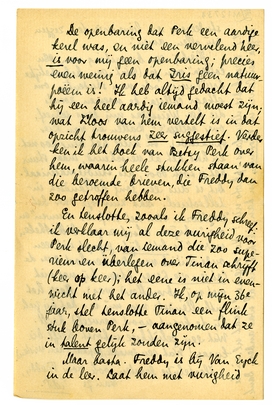 De openbaring dat Perk een aardige
kerel was, en niet een vervelend heer,
is voor mij geen openbaring; precies
even weinig als dat Iris geen natuur-
poëem is! Ik heb altijd gedacht dat
hij een heel aardig iemand moest zijn,
wat Kloos van hem vertelt is in dat
opzicht trouwens zeer suggestief. Verder
ken ik het boek van Betsy Perk over
hem, waarin heele stukken staan van
die beroemde brieven, die Freddy dan
zoo getroffen hebben.
En tenslotte, zooals ik Freddy schreef:
ik verklaar mij al deze vurigheid voor
Perk slecht, van iemand die zoo supe-
rieur en überlegen over Tinan schrijft
(keer op keer); het eene is niet in even-
wicht met het ander. Ik, op mijn 36e
jaar, stel tenslotte Tinan een flink
stuk boven Perk, — aangenomen dat ze
in talent gelijk zonden zijn.
Maar basta. Freddy is bij Van Eyck
in de leer. Baat hem met vurigheid